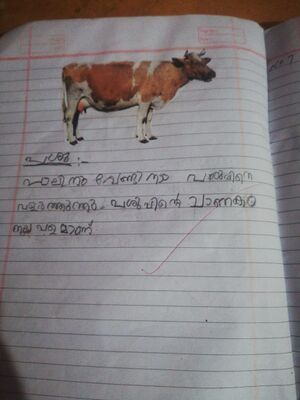 പശു :-
പാലിനു വേണ്ടി നാം പശുവിനെ
വളർത്തുന്നു. പശുവിന്റെ ചാണകം
നല്ല വളമാണ്